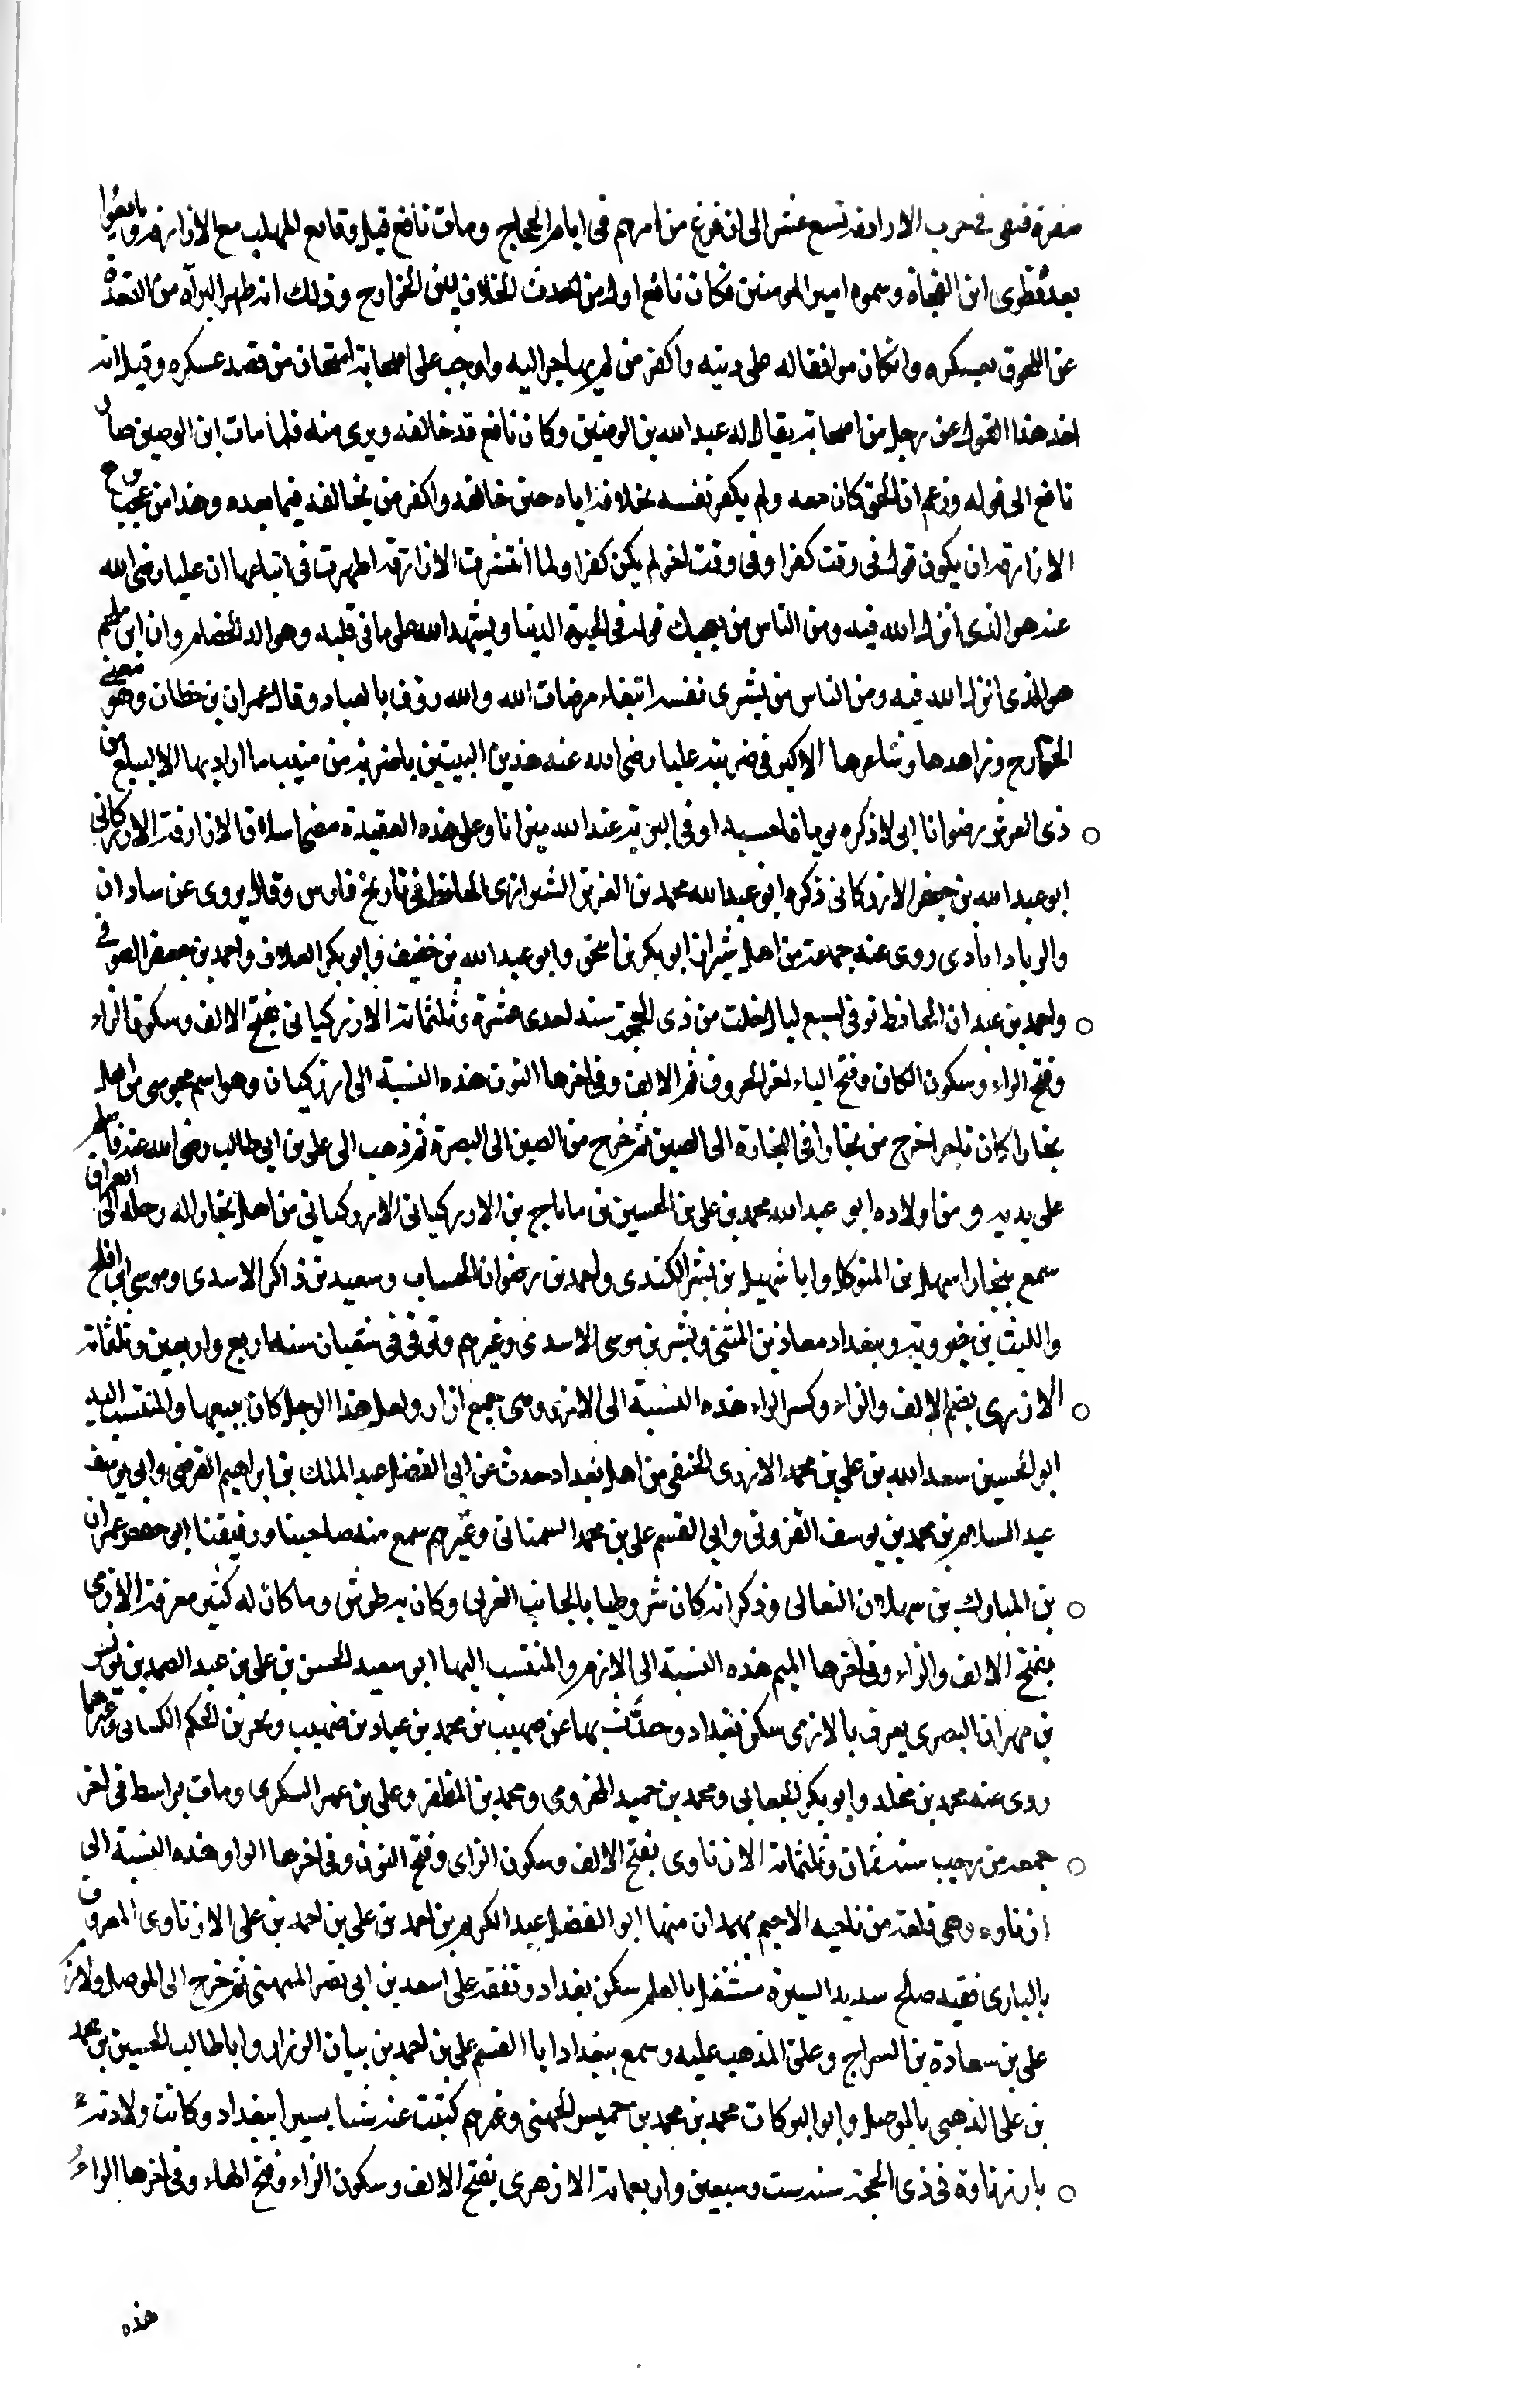 صفرة فبقى فى حرب الازارقة تسع عشر الى ان فرغ من امرهم فى ايام الحجاج ومات نافع قبل وقائع المهلب مع الازارقة وبايعوا
بعده قطرى ابن الفجاه وسموه امير المومنين فكان نافع اول من احدث الخلاف بين الخوارج وذلك انه ظهر البرآه من القعدة
عن اللحوق بعسكره وان كان موافقا له على دينه واكفر من لم يهاجر اليه واوجب على اصحابه امتحان من قصد عسكره وقيل انه
اخذ هذا القول عن رجل من اصحابه يقال له عبد الله بن الوضين وكان نافع قد خالفه وبرى منه فلما مات ابن الوضين صار
نافع الى قوله وزعم ان الحق كان معه ولم يكفر نفسه بخلافه اياه حين خالفه واكفر من يخالفه فيما بعده وهذا من عجيب
الازارقة ان يكون قول فى وقت كفرا وفى وقت اخر لم يكن كفرا ولما انتشرت الازارقه اظهرت فى اتباعها ان عليا رضى الله
عنه هو الذى انزل الله فيه ومن الناس من يعجبك قوله فى الحيوة الدنيا ويشهد الله على ما فى قلبه وهو الد الخصام وان ابن ملجم
هو الذى انزل الله فيه ومن الناس من يشرى نفسه ابتغاء مرضات الله والله رؤف بالعباد وقال عمران بن حطان وهو مفتى
الخوارج وزاهدها وشاعرها الاكبر فى ضربته عليا رضى الله عنه هذين البيتين يا ضربة من منيب ما اراد بها الا ليبلغ من
ذى العرش رضوانا انى لاذكره يوما فاحسبه اوفى البرية عند الله ميزانا وعلى هذه العقيدة مضى اسلاف الازارقة الازركانى
ابو عبد الله بن جعفر الازركانى ذكره ابو عبد الله محمد بن العزيز الشيرازى الحافظ فى تاريخ فارس وقال يروى عن شاذان
والزياداباذى روى عنه جماعة من اهل شيراز ابو بكر بن اسحق وابو عبد الله بن خفيف وابو بكر العلاف واحمد بن جعفر الصوفى
واحمد بن عبدان الحافظ توفى لسبع ليال خلت من ذى الحجة سنه احدى عشرة وثلثمائة الازركيانى بفتح الالف وسكون الزاء
وفتح الراء وسكون الكاف وفتح الياء اخر الحروف ثم الالف وفى اخرها النون هذه النسبة الى ازركيان وهو اسم مجوسى من اهل
بخارا كان تاجرا خرج من بخارا فى التجارة الى الصين ثم خرج من الصين الى البصرة ثم ذهب الى على بن ابى طالب رضى الله عنه فاسلم
على يديه ومن اولاده ابو عبد الله محمد بن على بن الحسين بن ماماج بن الازركيانى الازركيانى من اهل بخارا له رحلة الى العراق
سمع ببخارا سهل بن المتوكل وابا شهيل بن بشر الكندى واحمد بن رضوان الحساب وسعيد بن ذاكر الاسدى وموسى بن افلح
والليث بن خيرويه وببغداد معاذ بن المثنى وبشر بن موسى الاسدى وغيرهم وتوفى فى شعبان سنه اربع واربعين وثلثمائه
الازرى بضم الالف والزاء وكسر الراء هذه النسبة الى الازر وهى جمع ازار ولعل هذا الرجل كان يبيعها والمنتسب اليه
ابو الحسين سعد الله بن على بن محمد الازرى الحنفى من اهل بغداد حدث عن ابى الفضل عبد الملك بن ابراهيم الفرضى وابى يوسف
عبد السلام بن محمد بن يوسف القزوينى وابى القسم على بن محمد السمنانى وغيرهم سمع منه صاحبنا ورفيقنا ابو حفص عمران
بن المبارك بن سهلان النعالى وذكر انه كان شروطيا بالجانب الغربى وكان به طرش وما كان له كثير معرفة الازمى
بفتح الالف والزاء وفى اخرها الميم هذه النسبة الى الازم والمنتسب اليها ابو سعيد الحسن بن على بن عبد الصمد بن يونس
بن مهران البصرى يعرف بالازمى سكن بغداد وحدث بها عن صهيب بن محمد بن عباد بن صهيب وبحر بن الحكم الكسائى وغيرهما
روى عنه محمد بن مخلد وابو بكر الجعابى ومحمد بن حميد المخرومى ومحمد بن المظفر وعلى بن عمر السكرى ومات بواسط فى اخر
جمعه من رجب سنة ثمان وثلثمائة الازناوى بفتح الالف وسكون الزاى وفتح النون وفى اخرها الواو هذه النسبة الى
ازناوه وهى قلعة من ناحيه الاجم بهمدان منها ابو الفضل عبد الكريم بن احمد بن على بن احمد بن على الازناوى المعروف
بالبيارى فقيه صالح سديد السيرة مشتغل بالعلم سكن بغداد وتفقه على اسعد بن ابى نصر الميهنى ثم خرج الى الموصل ولازم
على بن سعادة بن السراج وعلق المذهب عليه وسمع ببغداد ابا القسم على بن احمد بن بيان الرزاز وابا طالب الحسين بن محمد
بن على الذهبى بالموصل وابو البركات محمد بن محمد بن خميس الجهنى وغيرهم كتبت عنه شيا يسيرا ببغداد وكانت ولادته
بازناوة فى ذى الحجة سنة ست وسبعين واربعمائة الازهرى بفتح الالف وسكون الزاء وفتح الهاء وفى اخرها الراء
هذه